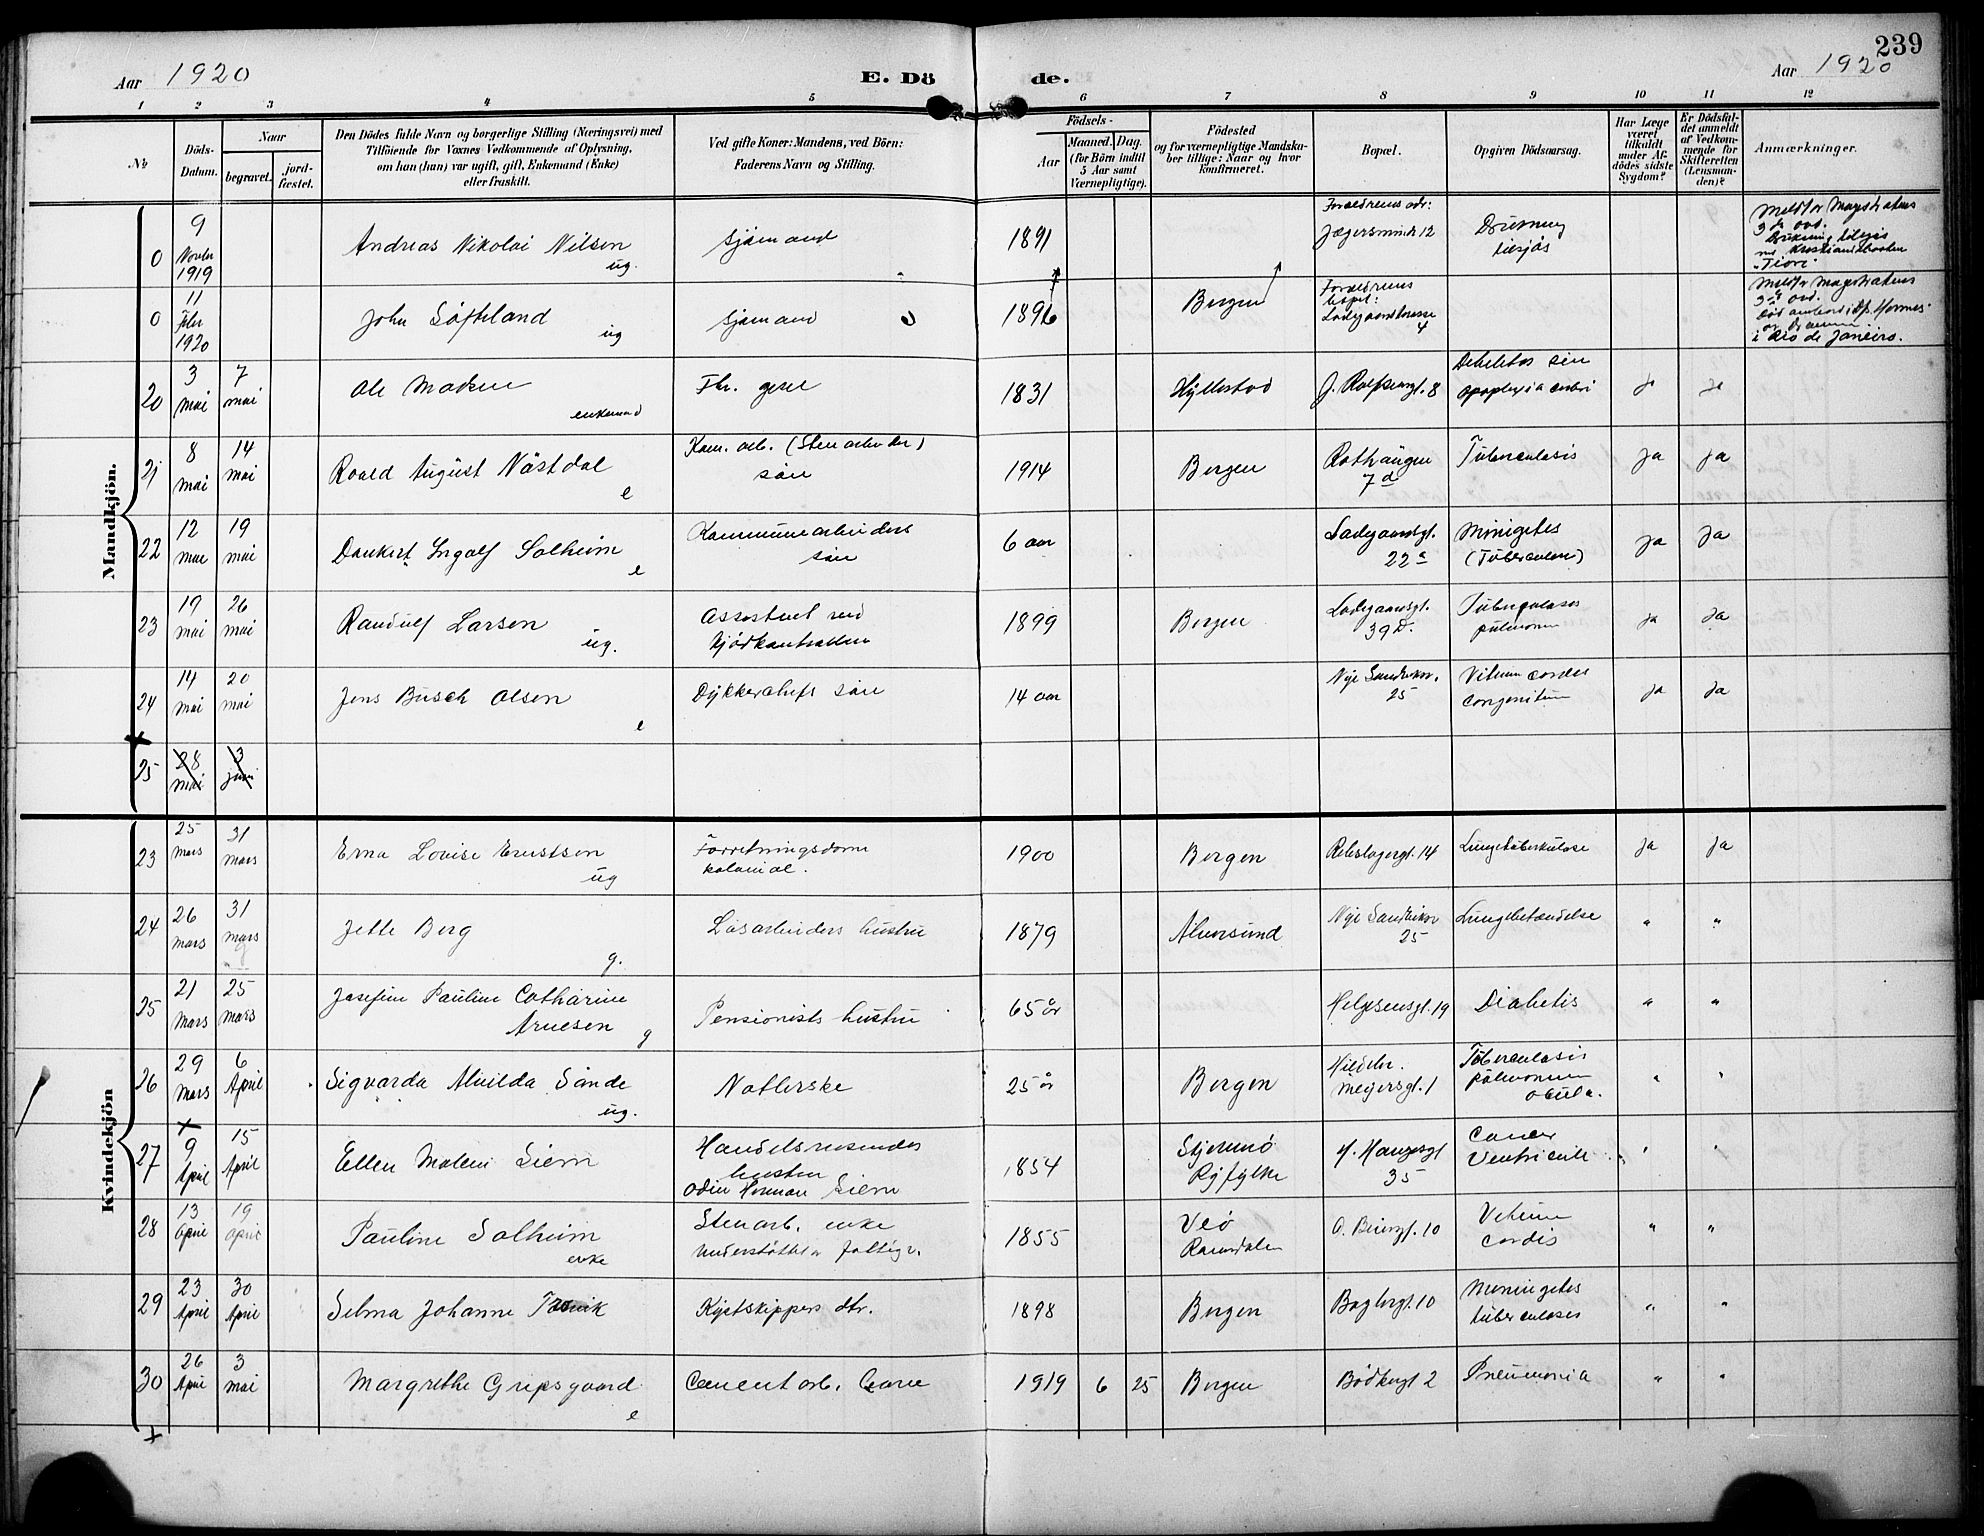 239
Aar 1920
E. Dö
de.
Aar 1920
1 2 3 4 5 6 7 8 9 10 11 12
No
Döds-Datum.
Naar
begravet.
jord-fæstet.
Den Dödes fulde Navn og borgerlige Stilling (Næringsvei) med
Tilföiende for Voxnes Vedkommende af Oplysning,
om han (hun) var ugift, gift, Enkemand (Enke)
eller fraskilt.
Ved gifte Koner: Mandens, ved Börn:
Faderens Navn og Stilling.
Födsels-
Aar
Maaned. Dag.
(for Börn indtil
5 Aar samt
Værnepligtige).
Födested
og for værnepligtige Mandska-
ber tillige: Naar og hvor
konfirmeret.
Bopæl.
Opgiven Dödsaarsag.
Har Læge
været
tilkaldt
under Af-
dödes sidste
Sygdom?
Er Dödsfal-
det anmeldt
af Vedkom-
mende for
Skifteretten
(Lensman-
den)?
Anmærkninger.
Mandkjön.
0 9 Novbr 1919 Andreas Nikolai Nilsen ug. Sjømand 1891 Forældrenes adr: Jægersminde 12
Drukning tilsjøs
0 11 Febr 1920 John Søfteland ug Sjømand 1896 Bergen Forældrenes bopæl: 4
i Rio de Janeiro.
20 3 mai 7 mai Ole Madsen enkemand Fhv. 1831 Hyllestad 8 apoplexia cerebri ja ja
21 8 mai 14 mai Roald August Nåstdal e Kom. arb. (Stenarbeider) søn 1914 Bergen Rothaugen 7d Tuberculosis ja ja
22 12 mai 19 mai Dankert Ingolf Solheim e Kommunearbeiders søn 6 aar Ladegaardsgt. 22a (Tuberculose) ja ja
23 19 mai 26 mai Randulf Larsen ug. Assistent ved Kjødkontrollen 1899 Bergen Ladegaardsgt. 39D. Tuberculosis pulmonum ja ja
24 14 mai 20 mai Jens Busch Olsen e Dykkerchefs søn 14 aar Nye Sandviksv. 25 Vitium cordis congenitum ja ja
25 28 mai 3 juni
Kvindekjön
23 25 mars 31 mars Erna Louise Erustsen ug Forretningsdame kolonial. 1900 Bergen Rebslagergt. 14 Lungetuberkulose ja ja
24 26 mars 31 mars Jette Berg g. Løsarbeiders hustru 1879 Alversund Nye Sandviksv 25 Lungebetændelse " "
25 21 mars 25 mars Josefine Pauline Catharine Arnesen g Pensionists hustru 65 år Helgesensgt. 19 Diabetis " "
26 29 mars 6 April Sigvarda Alvilda Sande ug. Natlerske 25 år Bergen Meyersgt. 1 Tuberculosis pulmonum " "
27 9 April 15 April Ellen Malene Siem Handelsreisendes hustru Odin Herman Siem 1854 Stjernerø Ryfylke H. Haugesgt 35 Cancer Ventriculi " "
28 13 April 19 April Pauline Solheim enke Stenarb. enke understøttet av fattigv. 1855 Veø Romsdalen 10 Vitium cordis " "
29 23 April 30 April Selma Johanne Kystskippers dtr. 1898 Bergen Baglergt. 10 Meningitis tuberculosis " "
30 26 April 3 mai Margrethe Gripsgaard e Cementarb. barn 1919 6 25 Bergen Bødkergt 2 Pneumonia " "